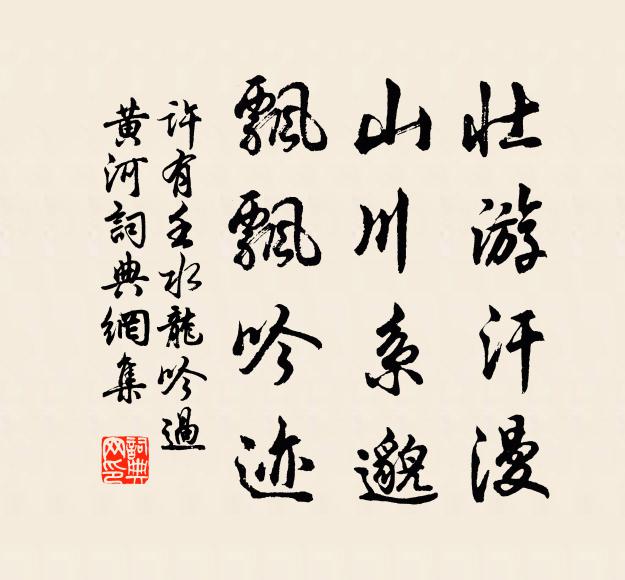 壮游汗漫
山川系邈
飘飘吟迹
许有壬水龙吟過
黄河詞典網集
詞典网印